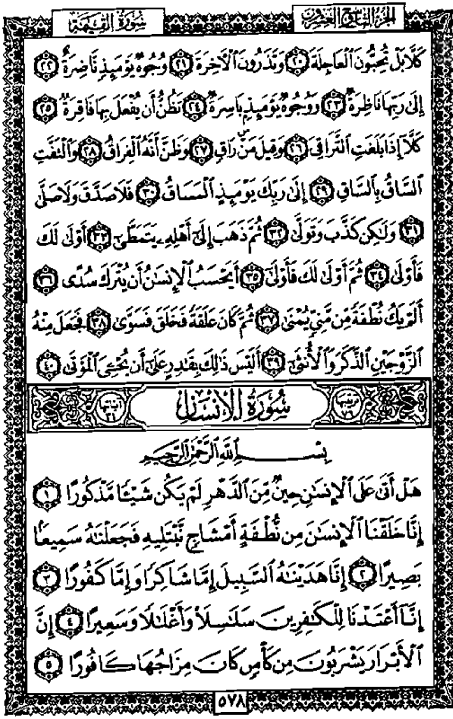 الجزء التاسع والعشرون
سورة القيامة
كَلَّا بَلْ تُحِبُّونَ ٱلْعَاجِلَةَ ٢٠ وَتَذَرُونَ ٱلْآخِرَةَ ٢١ وُجُوهٌ يَوْمَئِذٍ نَّاضِرَةٌ ٢٢
إِلَىٰ رَبِّهَا نَاظِرَةٌ ٢٣ وَوُجُوهٌ يَوْمَئِذٍ بَاسِرَةٌ ٢٤ تَظُنُّ أَن يُفْعَلَ بِهَا فَاقِرَةٌ ٢٥
كَلَّا إِذَا بَلَغَتِ ٱلتَّرَاقِيَ ٢٦ وَقِيلَ مَنْ رَاقٍ ٢٧ وَظَنَّ أَنَّهُ ٱلْفِرَاقُ ٢٨ وَٱلْتَفَّتِ
ٱلسَّاقُ بِٱلسَّاقِ ٢٩ إِلَىٰ رَبِّكَ يَوْمَئِذٍ ٱلْمَسَاقُ ٣٠ فَلَا صَدَّقَ وَلَا صَلَّىٰ
٣١ وَلَٰكِن كَذَّبَ وَتَوَلَّىٰ ٣٢ ثُمَّ ذَهَبَ إِلَىٰ أَهْلِهِۦ يَتَمَطَّىٰٓ ٣٣ أَوْلَىٰ لَكَ
فَأَوْلَىٰ ٣٤ ثُمَّ أَوْلَىٰ لَكَ فَأَوْلَىٰٓ ٣٥ أَيَحْسَبُ ٱلْإِنسَٰنُ أَن يُتْرَكَ سُدًى ٣٦
أَلَمْ يَكُ نُطْفَةً مِّن مَّنِىٍّ يُمْنَىٰ ٣٧ ثُمَّ كَانَ عَلَقَةً فَخَلَقَ فَسَوَّىٰ ٣٨ فَجَعَلَ مِنْهُ
ٱلزَّوْجَيْنِ ٱلذَّكَرَ وَٱلْأُنثَىٰٓ ٣٩ أَلَيْسَ ذَٰلِكَ بِقَٰدِرٍ عَلَىٰٓ أَن يُحْـِۧىَ ٱلْمَوْتَىٰ ٤٠
سُورَةُ الإِنسَان
بِسْمِ ٱللَّهِ ٱلرَّحْمَٰنِ ٱلرَّحِيمِ
هَلْ أَتَىٰ عَلَى ٱلْإِنسَٰنِ حِينٌ مِّنَ ٱلدَّهْرِ لَمْ يَكُن شَيْـًٔا مَّذْكُورًا ١
إِنَّا خَلَقْنَا ٱلْإِنسَٰنَ مِن نُّطْفَةٍ أَمْشَاجٍ نَّبْتَلِيهِ فَجَعَلْنَٰهُ سَمِيعًۢا
بَصِيرًا ٢ إِنَّا هَدَيْنَٰهُ ٱلسَّبِيلَ إِمَّا شَاكِرًا وَإِمَّا كَفُورًا ٣
إِنَّآ أَعْتَدْنَا لِلْكَٰفِرِينَ سَلَٰسِلَا۟ وَأَغْلَٰلًا وَسَعِيرًا ٤ إِنَّ
ٱلْأَبْرَارَ يَشْرَبُونَ مِن كَأْسٍ كَانَ مِزَاجُهَا كَافُورًا ٥
٥٧٨